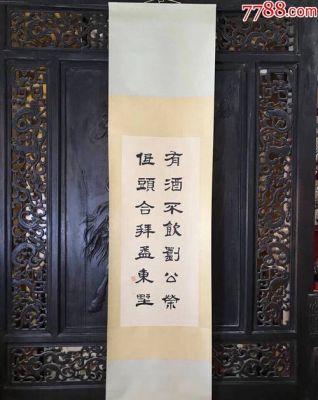 7788.com
有酒不飲劉公榮
低頭合拜孟東野